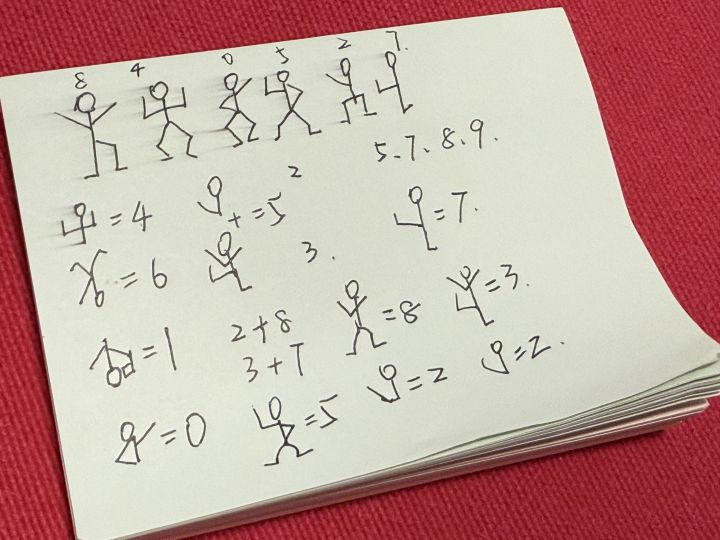 8 4 0 5 2 7.
5.7.8.9.
=4
2
+=5
=7.
=6
3.
=1
2+8
3+7
=8
=3.
=0
=5
=2
=2.